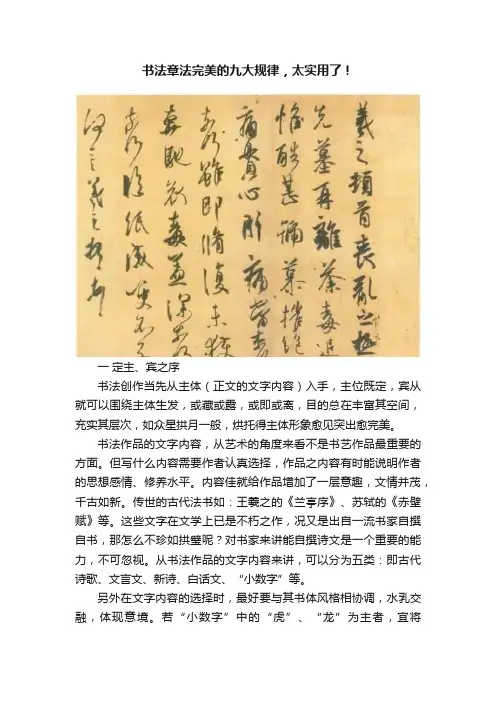 书法章法完美的九大规律，太实用了！
羲之頓首喪亂之極
先墓再離荼毒追
惟酷甚號慕摧絕
痛貫心肝痛當奈何
奈何雖即脩復未獲
奔馳哀毒益深奈何
奈何臨紙感哽不知
何言羲之頓首
一 定主、宾之序
书法创作当先从主体（正文的文字内容）入手，主位既定，宾从
就可以围绕主体生发，或藏或露，或即或离，目的总在丰富其空间，
充实其层次，如众星拱月一般，烘托得主体形象愈见突出愈完美。
书法作品的文字内容，从艺术的角度来看不是书艺作品最重要的
方面。但写什么内容需要作者认真选择，作品之内容有时能说明作者
的思想感情、修养水平。内容佳就给作品增加了一层意趣，文情并茂，
千古如新。传世的古代法书如：王羲之的《兰亭序》、苏轼的《赤壁
赋》等。这些文字在文学上已是不朽之作，况又是出自一流书家自撰
自书，那怎么不珍如拱璧呢？对书家来讲能自撰诗文是一个重要的能
力，不可忽视。从书法作品的文字内容来讲，可以分为五类：即古代
诗歌、文言文、新诗、白话文、“小数字”等。
另外在文字内容的选择时，最好要与其书体风格相协调，水乳交
融，体现意境。若“小数字”中的“虎”、“龙”为主者，宜将